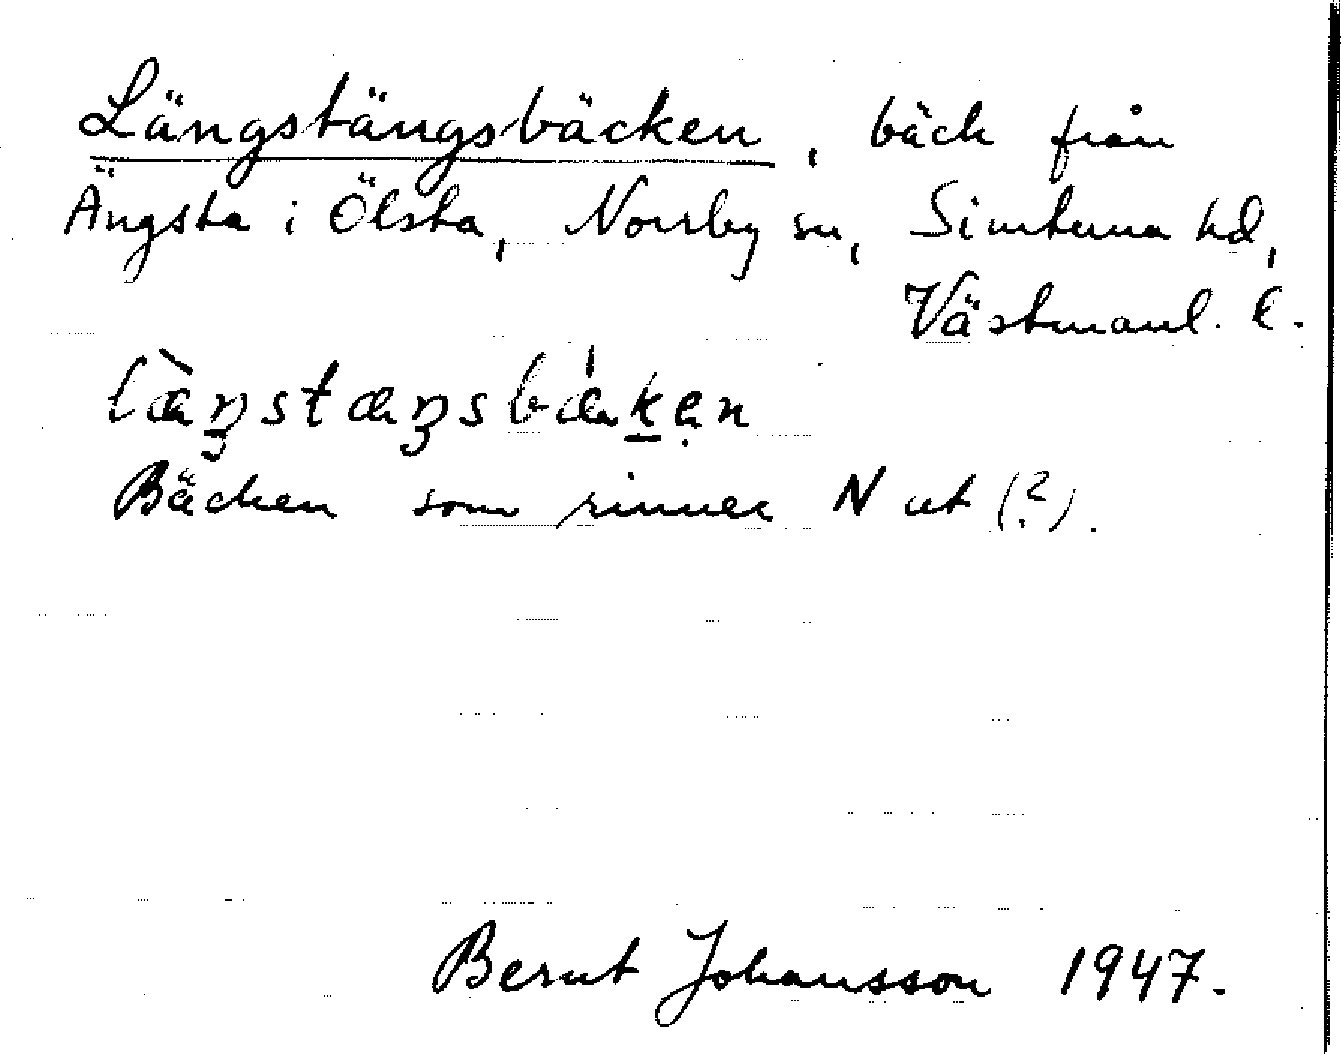 Längstängsbäcken, bäck från
Ängsta i Ölsta, Norrby sn, Simtuna hd,
Västmanl. l.
læ̀ŋstæŋsbǽk̠ẹn
Bäcken som rinner N ut (?).
Bernt Johansson 1947.